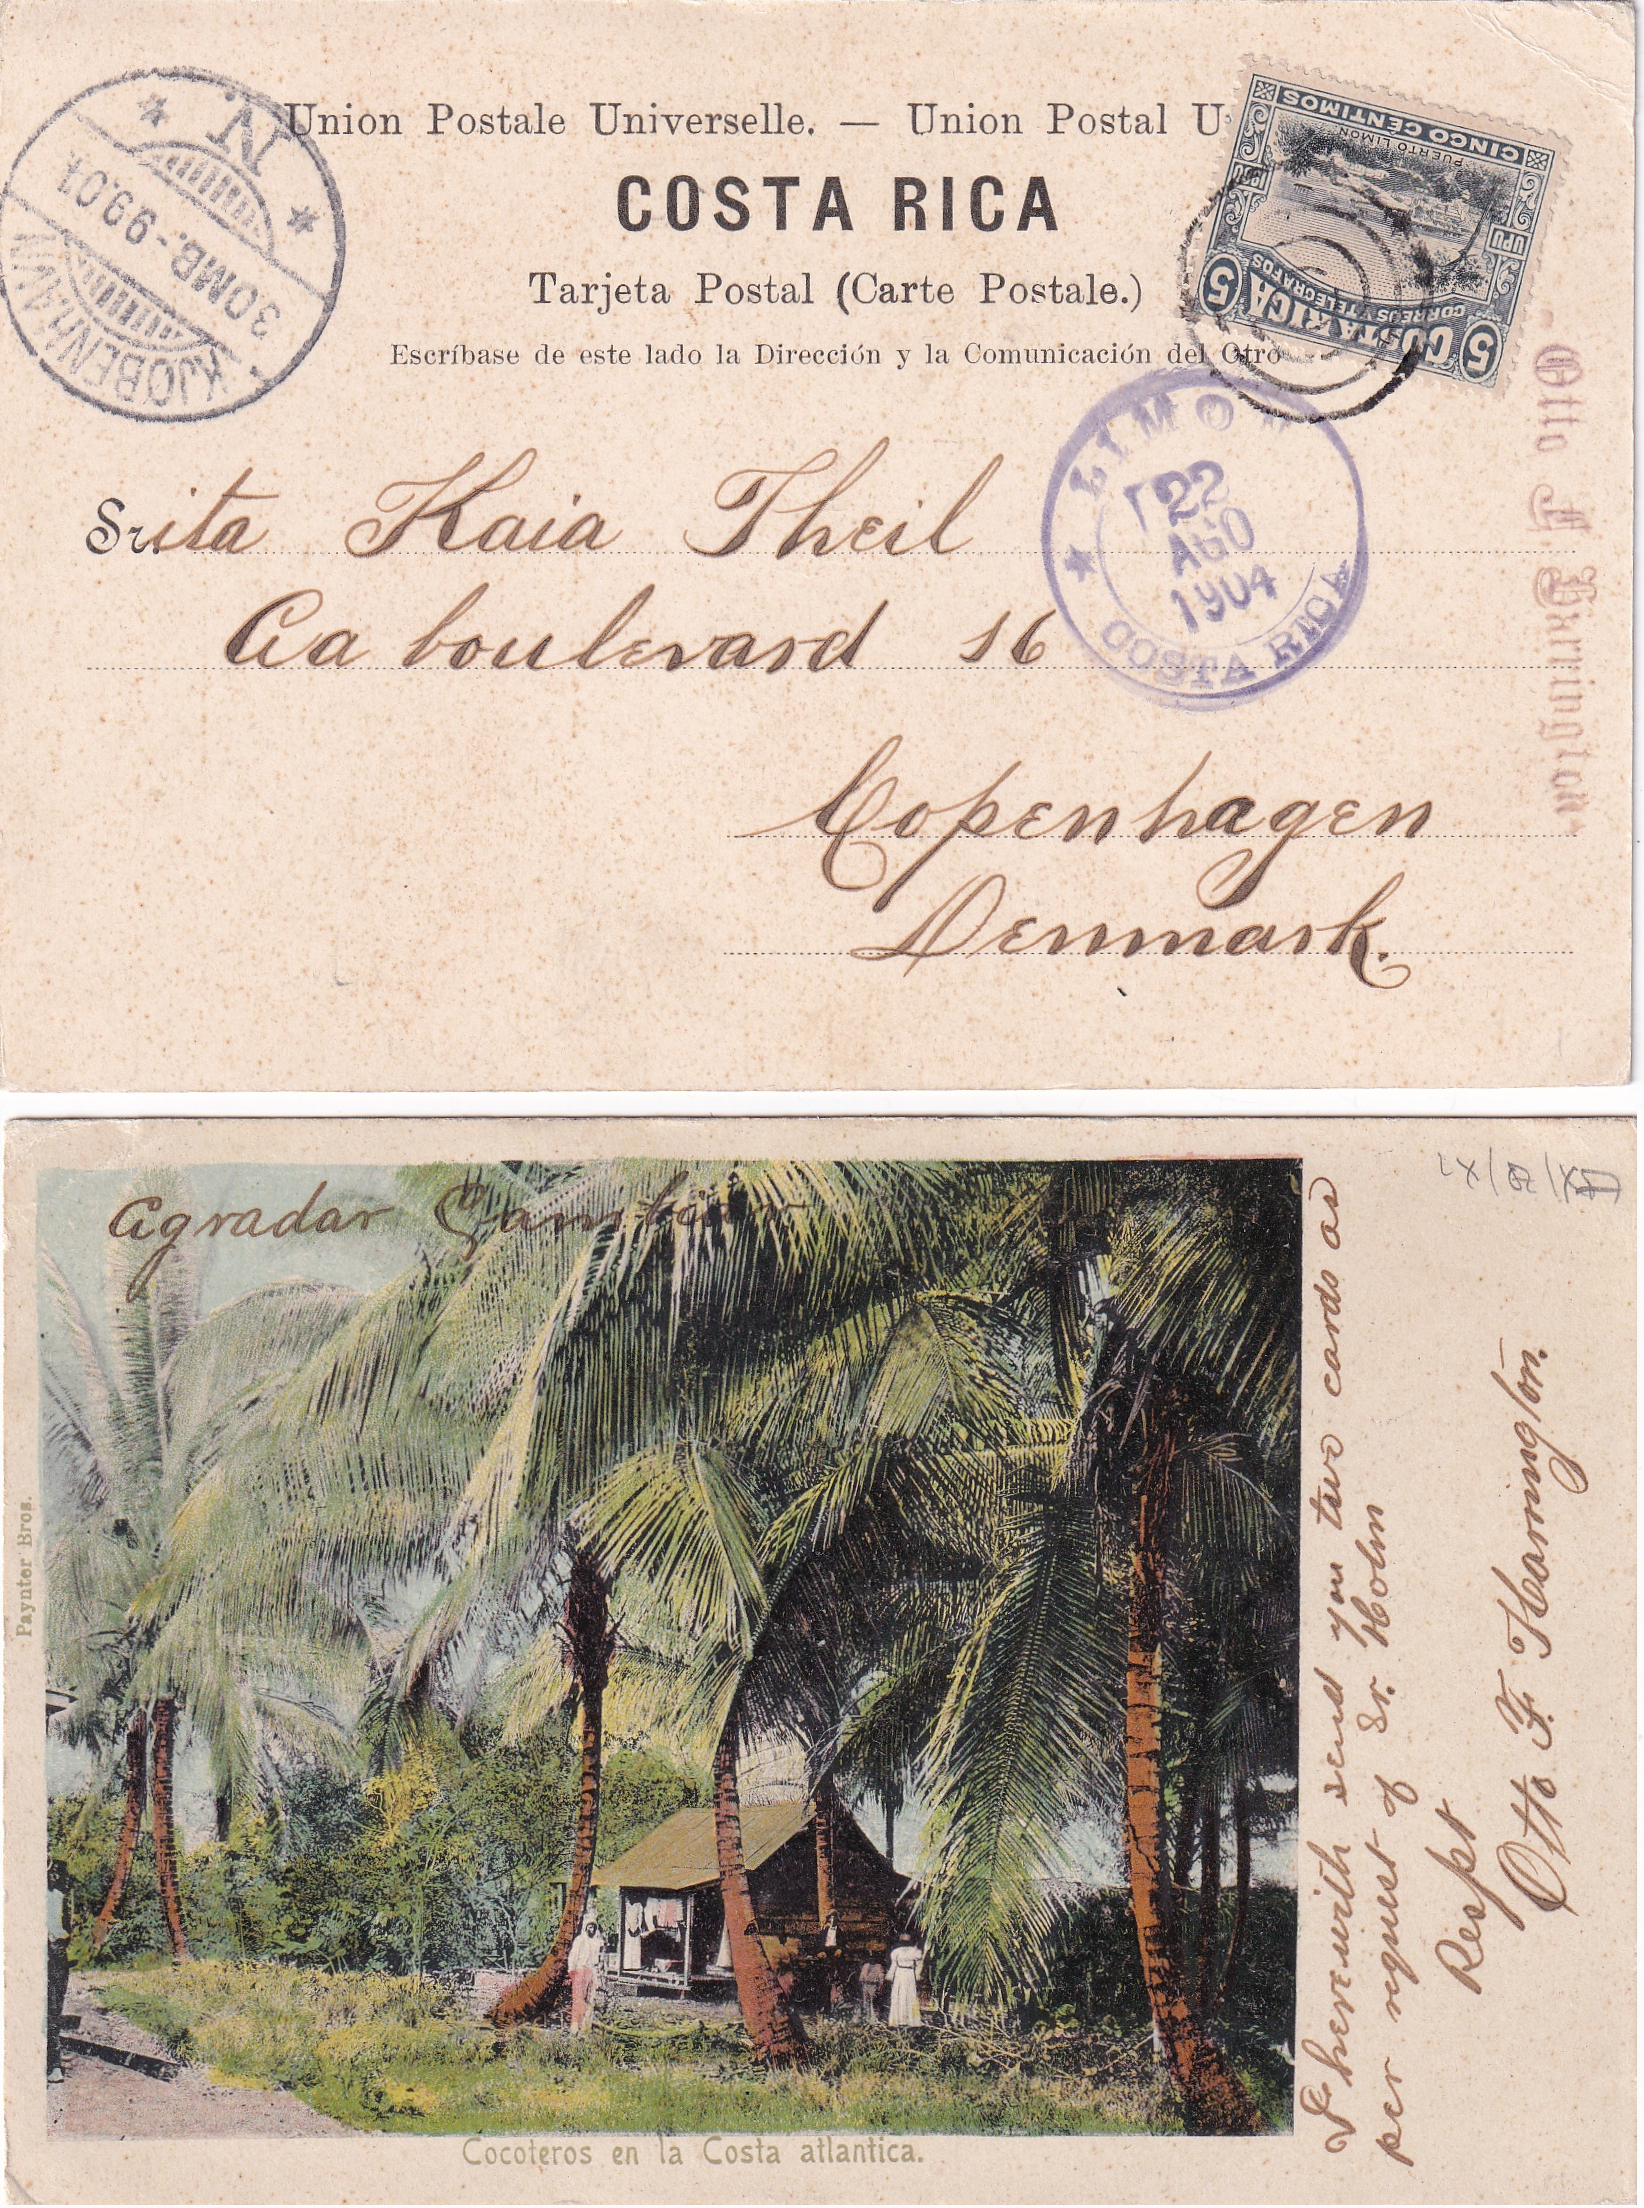 Union Postale Universelle. — Union Postal U
COSTA RICA
Tarjeta Postal (Carte Postale.)
Escríbase de este lado la Dirección y la Comunicación del Otro
KJØBENHAVN
3OMB.-9.9.04
N.
CINCO CENTIMOS
PUERTO LIMON
UPU
1900
UPU
CORREOS Y TELEGRAFOS
5 COSTA RICA 5
LIMON
22
AGO
1904
COSTA RICA
Otto F Harrington
Srita Kaia Theil
Aaboulevard 16
Copenhagen
Denmark.
Agradar Cambiar
Paynter Bros.
I herewith send you two cards as
per request of Sr. Holm
Respt
Otto F Harrington.
Cocoteros en la Costa atlantica.